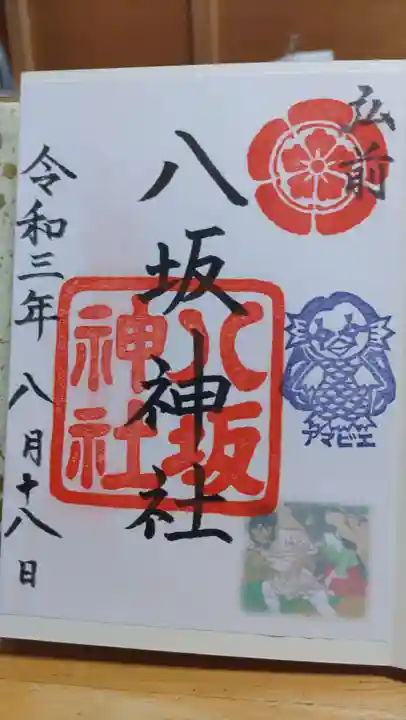 弘前
八坂神社
八坂
神社
アマビエ
令和三年 八月十八日